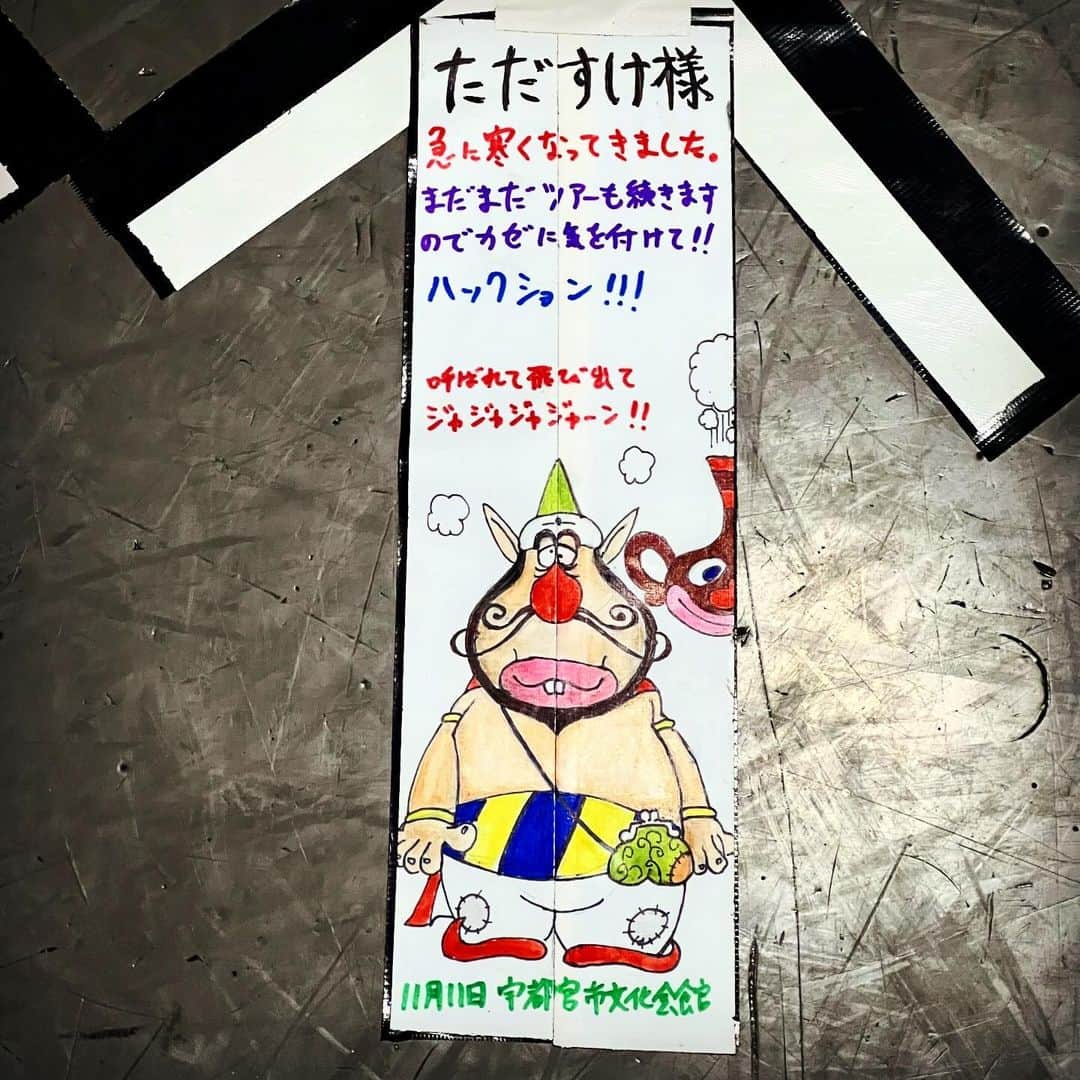 ただすけ様
急に寒くなってきました。
まだまだツアーも続きます
のでカゼに気を付けて!!
ハックション!!!
呼ばれて飛び出て
ジャジャジャジャーン!!
11月11日 宇都宮市文化会館